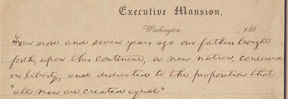 Executive Mansion,
Washington, , 186
Four score and seven years ago our fathers brought
forth, upon this continent, a new nation, conceived
in liberty, and dedicated to the proposition that
"all men are created equal"